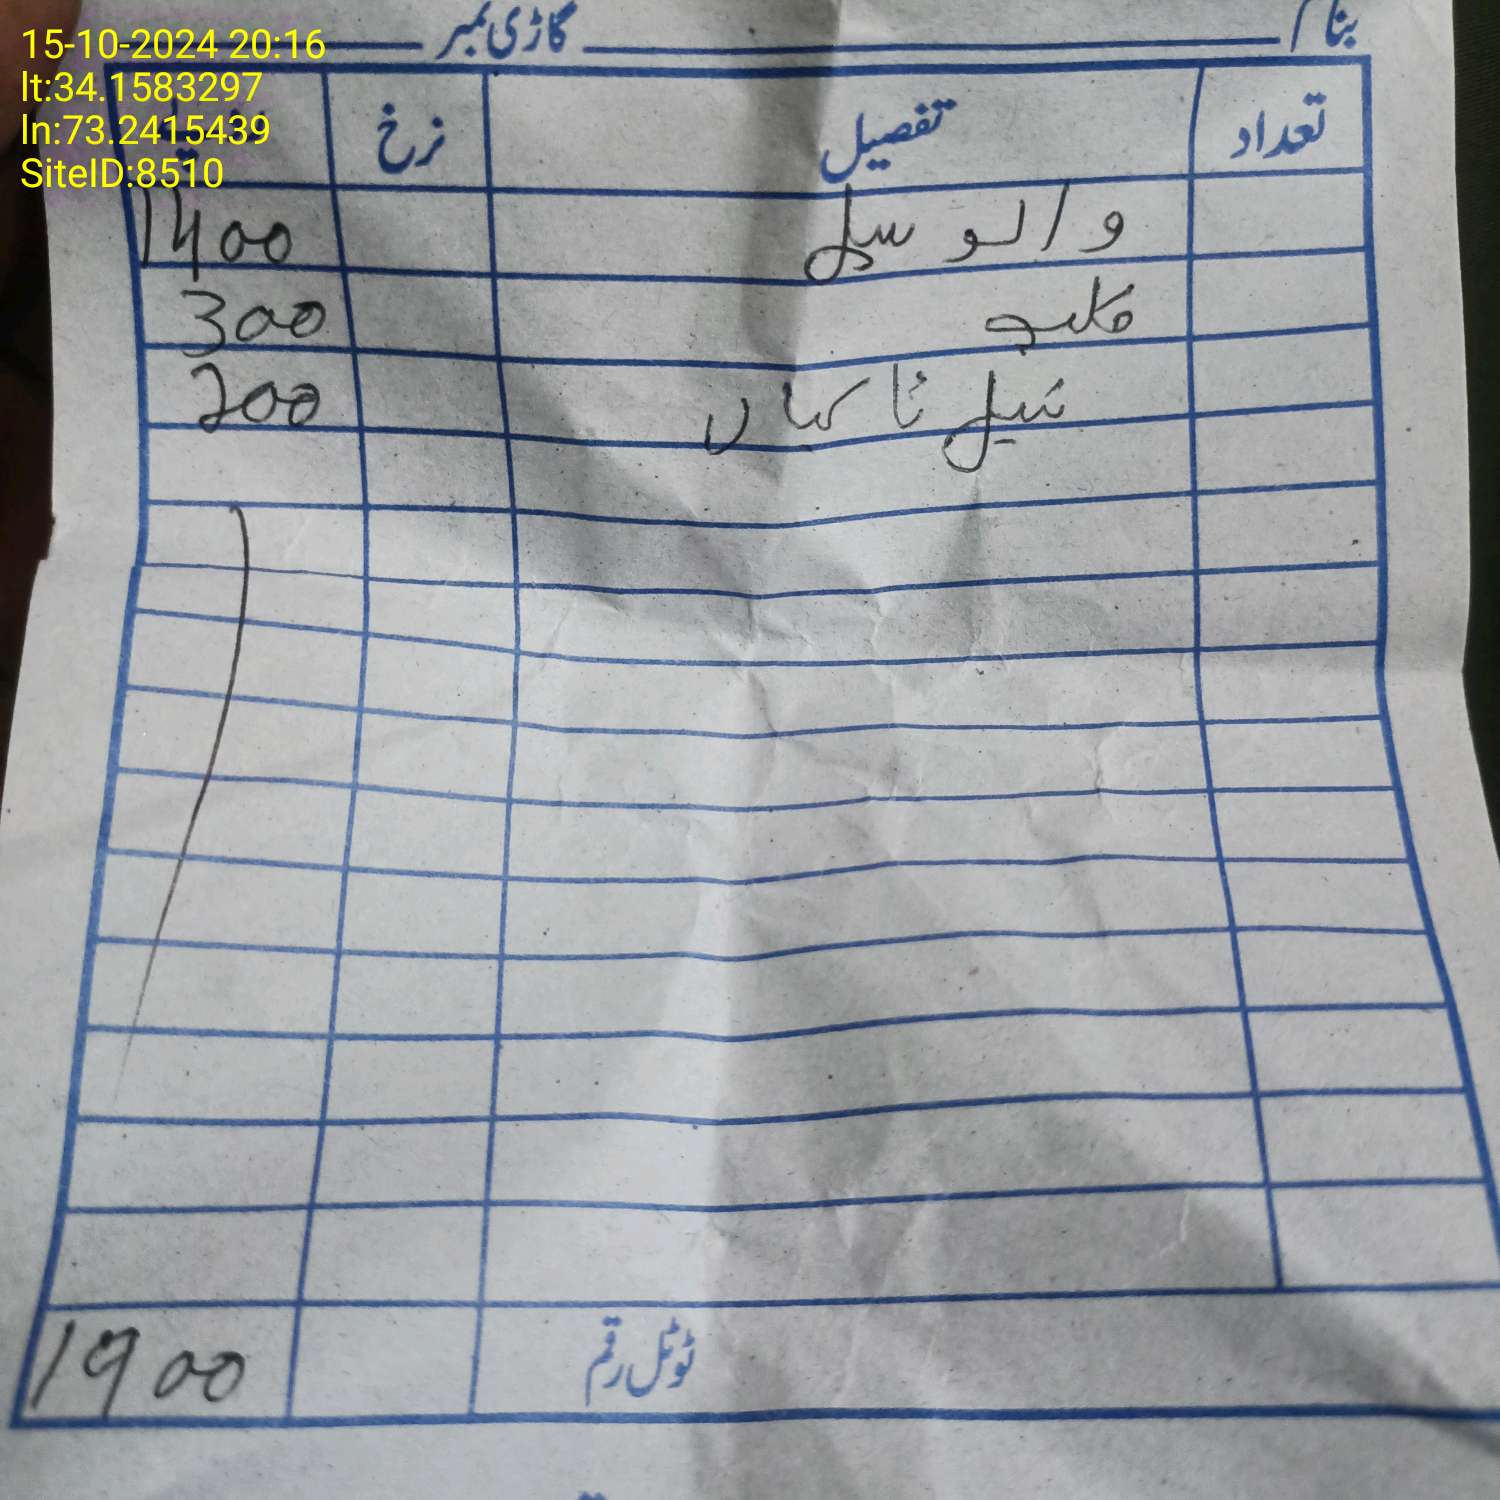 15-10-2024 20:16
lt:34.1583297
ln:73.2415439
SiteID:8510
بنام گاڑی نمبر
تعداد تفصیل نرخ
والو سیل 1400
300
ٹا کیاں 200
ٹوٹل رقم 1900